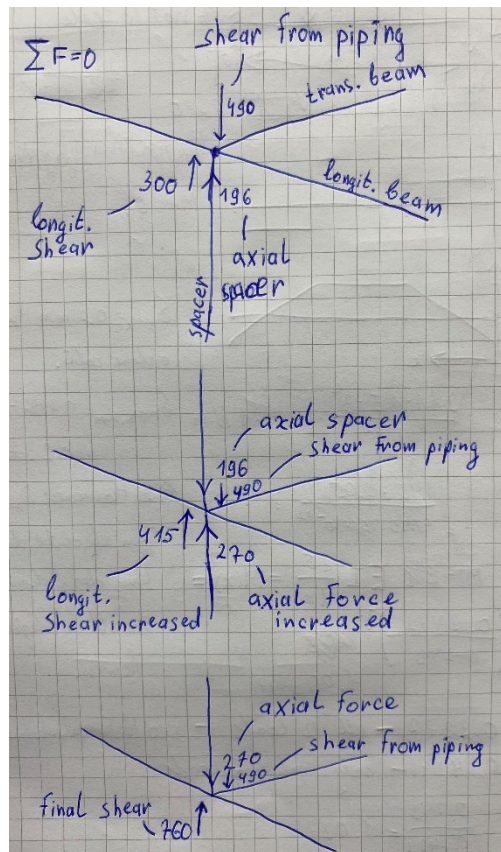 shear from piping
∑F=0
490
trans. beam
300
196
longit. beam
longit.
shear
axial
spacer
spacer
axial spacer
196
shear from piping
490
415
270
longit.
Shear increased
axial force
increased
axial force
270
shear from piping
490
final shear
760